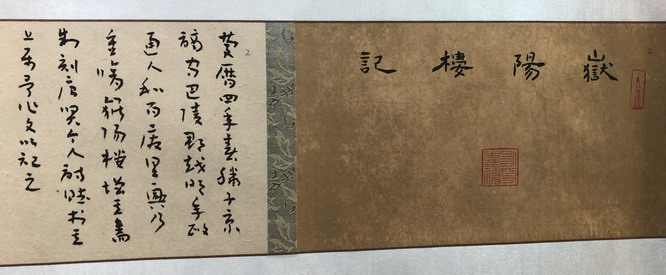 嶽陽樓記
2
2
慶曆四年春滕子京
謫守巴陵郡越明年政
通人和百廢具興乃
重脩嶽陽樓增其舊
制刻唐賢今人詩賦於其
上屬予作文以記之